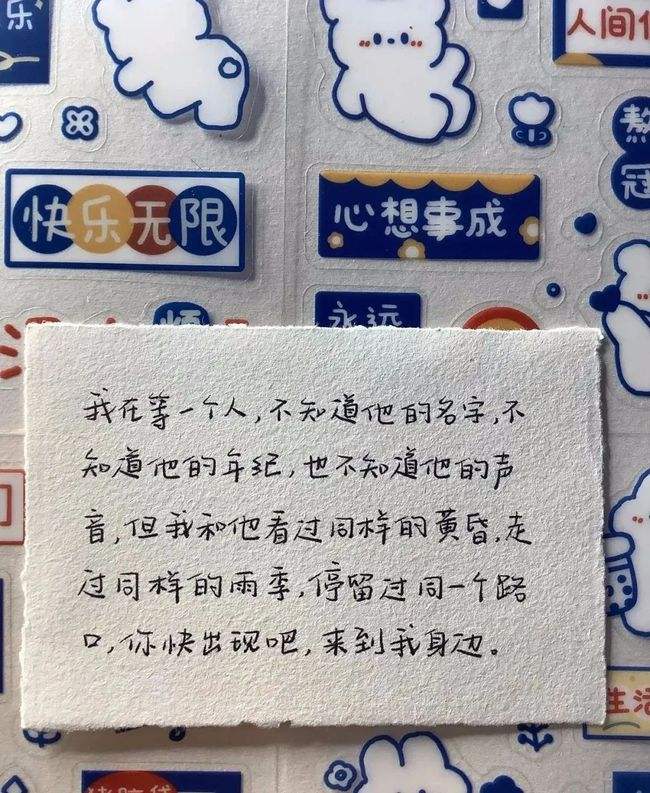 乐
人间
快乐无限
心想事成
熬
冠
永远
烦
我在等一个人,不知道他的名字,不
知道他的年纪,也不知道他的声
音,但我和他看过同样的黄昏,走
过同样的雨季,停留过同一个路
口,你快出现吧,来到我身边。
生活